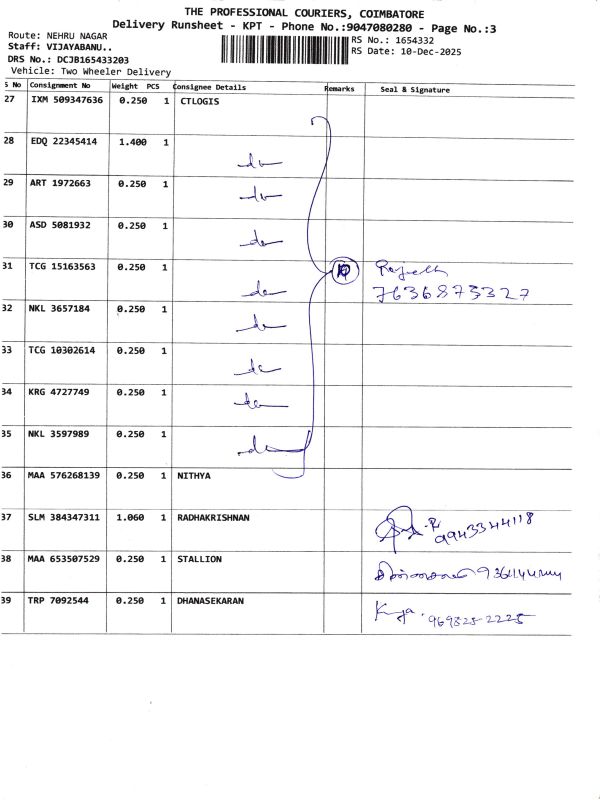 THE PROFESSIONAL COURIERS, COIMBATORE
Delivery Runsheet - KPT - Phone No.:9047080280 - Page No.:3
Route: NEHRU NAGAR
RS No.: 1654332
Staff: VIJAYABANU..
RS Date: 10-Dec-2025
DRS No.: DCJB165433203
Vehicle: Two Wheeler Delivery
S No Consignment No Weight PCS Consignee Details Remarks Seal & Signature
27 IXM 509347636 0.250 1 CTLOGIS
28 EDQ 22345414 1.400 1
29 ART 1972663 0.250 1
30 ASD 5081932 0.250 1
31 TCG 15163563 0.250 1
7636873327
32 NKL 3657184 0.250 1
33 TCG 10302614 0.250 1
34 KRG 4727749 0.250 1
35 NKL 3597989 0.250 1
36 MAA 576268139 0.250 1 NITHYA
37 SLM 384347311 1.060 1 RADHAKRISHNAN
9943344118
38 MAA 653507529 0.250 1 STALLION
39 TRP 7092544 0.250 1 DHANASEKARAN